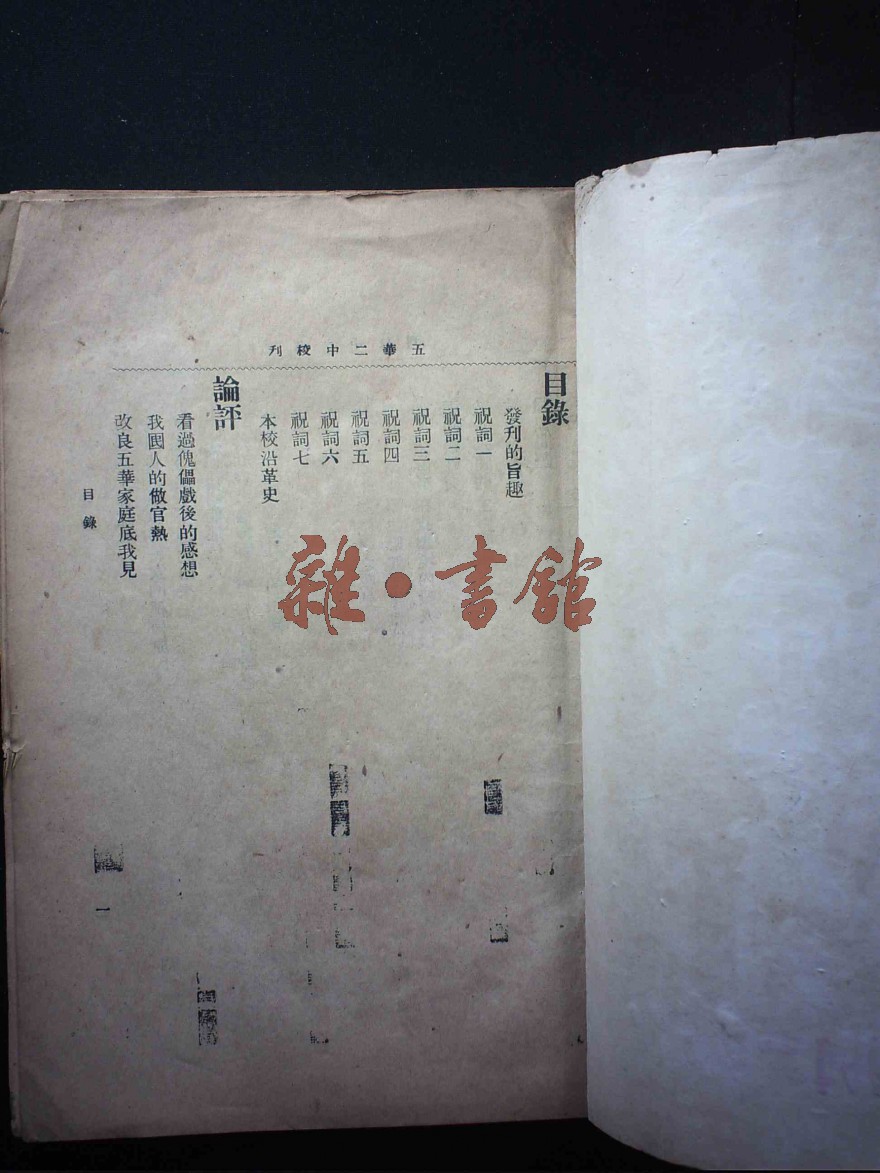 五華二中校刊
目錄
發刊的旨趣
祝詞一
祝詞二
祝詞三
祝詞四
祝詞五
祝詞六
祝詞七
本校沿革史
論評
看過傀儡戲後的感想
我國人的做官熱
改良五華家庭底我見
目錄
一
雜·書館